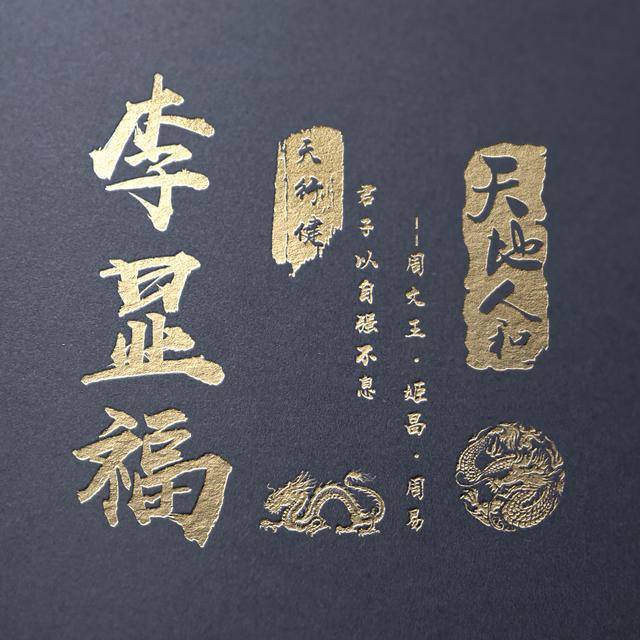 李显福
天行健
君子以自强不息
—周文王·姬昌·周易
天地人和